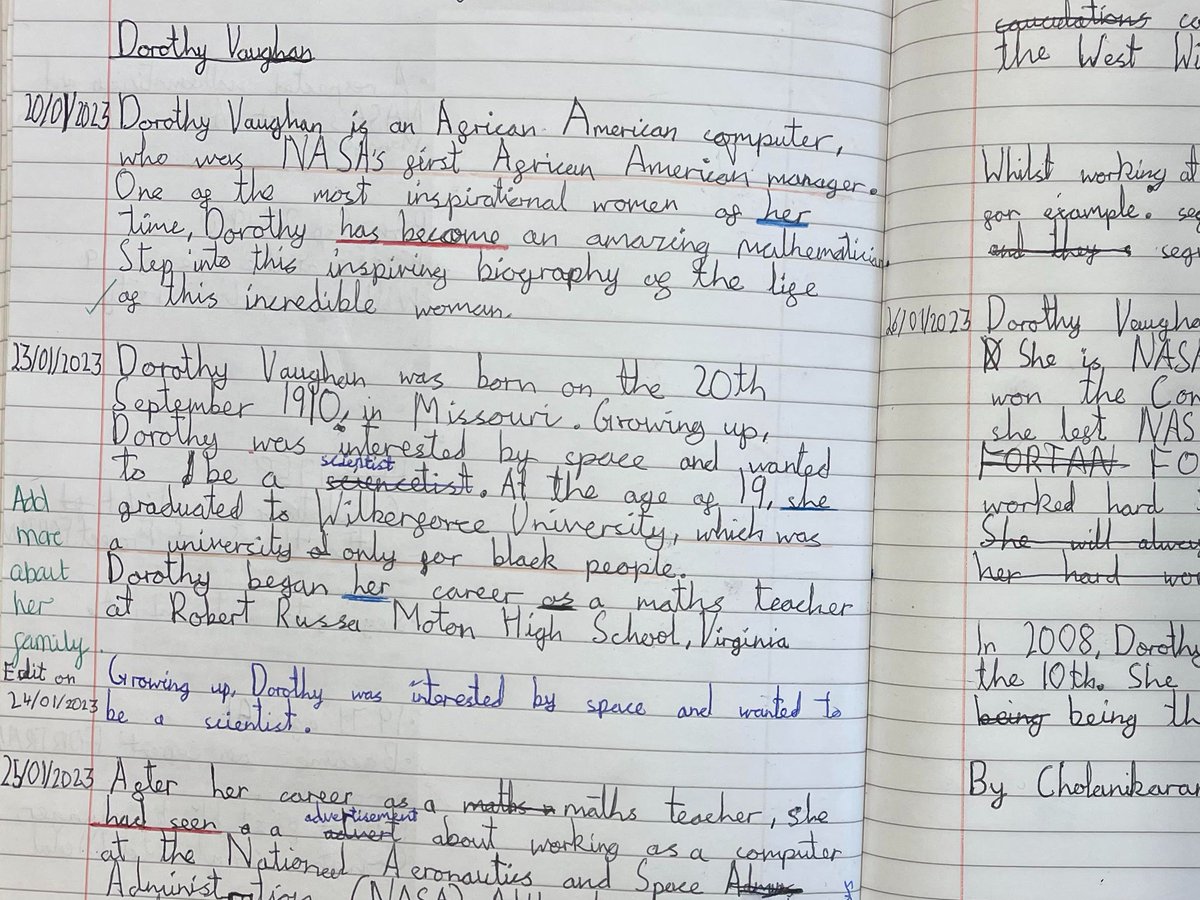 Dorothy Vaughan
20/01/2023 Dorothy Vaughan is an African American computer,
who was NASA's first African American manager.
One of the most inspirational women of her
time, Dorothy has become an amazing mathematician.
Step into this inspiring biography of the life
of this incredible woman.
23/01/2023 Dorothy Vaughan was born on the 20th
September 1910, in Missouri. Growing up,
Dorothy was interested by space and wanted
scientist
to be a sciencetist. At the age of 19, she
graduated to Wilberforce University, which was
a university only for black people.
Dorothy began her career as a maths teacher
at Robert Russa Moton High School, Virginia
Add
more
about
her
family.
Edit on
24/01/2023
Growing up, Dorothy was interested by space and wanted to
be a scientist.
25/01/2023 After her career as a maths maths teacher, she
advertisement
had seen a advert about working as a computer
at, the National Aeronautics and Space
(NASA)
the West
Whilst working at
for example. seg
and they s segr
26/01/2023 Dorothy Vaugha
She is NASA
won the Con
she left NAS
FORTAN FO
worked hard
She will alway
her hard wor
In 2008, Dorothy
the 10th. She
being being th
By Cholanikaran